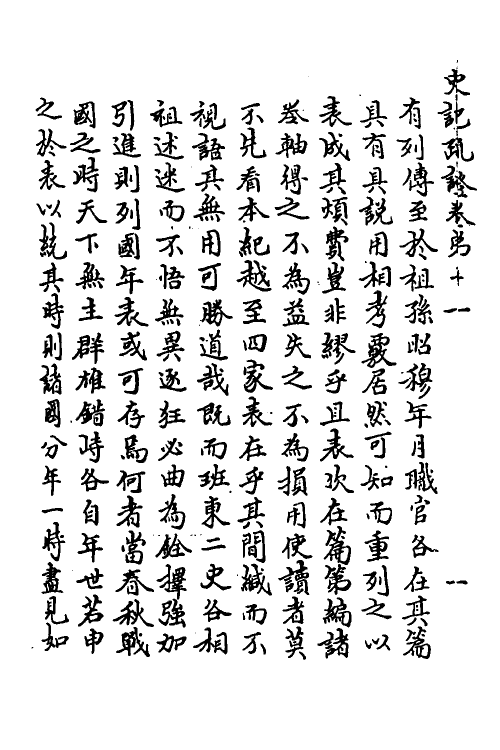 史記疏證卷第十一 一
有列傳至於祖孫昭穆年月職官各在其篇
具有其說用相考覈居然可知而重列之以
表成其煩費豈非繆乎且表次在篇第編諸
卷軸得之不為益失之不為損用使讀者莫
不先看本紀越至四家表在乎其間緘而不
視語其無用可勝道哉既而班東二史各相
祖述迷而不悟無異逐狂必曲為銓擇強加
引進則列國年表或可存焉何者當春秋戰
國之時天下無主群雄錯峙各自年世若申
之於表以統其時則諸國分年一時盡見如